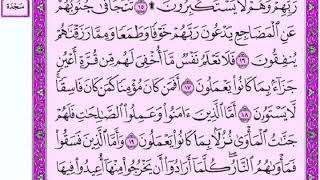 سَجْدَة
رَبِّهِمْ وَهُمْ لَا يَسْتَكْبِرُونَ ۩ ١٥ تَتَجَافَىٰ جُنُوبُهُمْ
عَنِ الْمَضَاجِعِ يَدْعُونَ رَبَّهُمْ خَوْفًا وَطَمَعًا وَمِمَّا رَزَقْنَاهُمْ
يُنفِقُونَ ١٦ فَلَا تَعْلَمُ نَفْسٌ مَّا أُخْفِيَ لَهُم مِّن قُرَّةِ أَعْيُنٍ
جَزَاءً بِمَا كَانُوا يَعْمَلُونَ ١٧ أَفَمَن كَانَ مُؤْمِنًا كَمَن كَانَ فَاسِقًا
لَّا يَسْتَوُونَ ١٨ أَمَّا الَّذِينَ آمَنُوا وَعَمِلُوا الصَّالِحَاتِ فَلَهُمْ
جَنَّاتُ الْمَأْوَىٰ نُزُلًا بِمَا كَانُوا يَعْمَلُونَ ١٩ وَأَمَّا الَّذِينَ فَسَقُوا
فَمَأْوَاهُمُ النَّارُ كُلَّمَا أَرَادُوا أَن يَخْرُجُوا مِنْهَا أُعِيدُوا فِيهَا